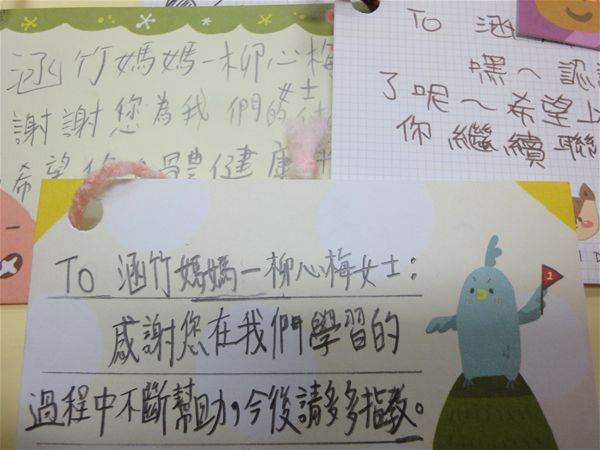 涵竹媽媽一柳心梅
女士
謝謝您為我們的付
希望您 體健康
TO 涵
嘿~認
了呢~希望上
你繼續聯
TO 涵竹媽媽一柳心梅女士:
感謝您在我們學習的
過程中不斷幫助,今後請多多指教。
1